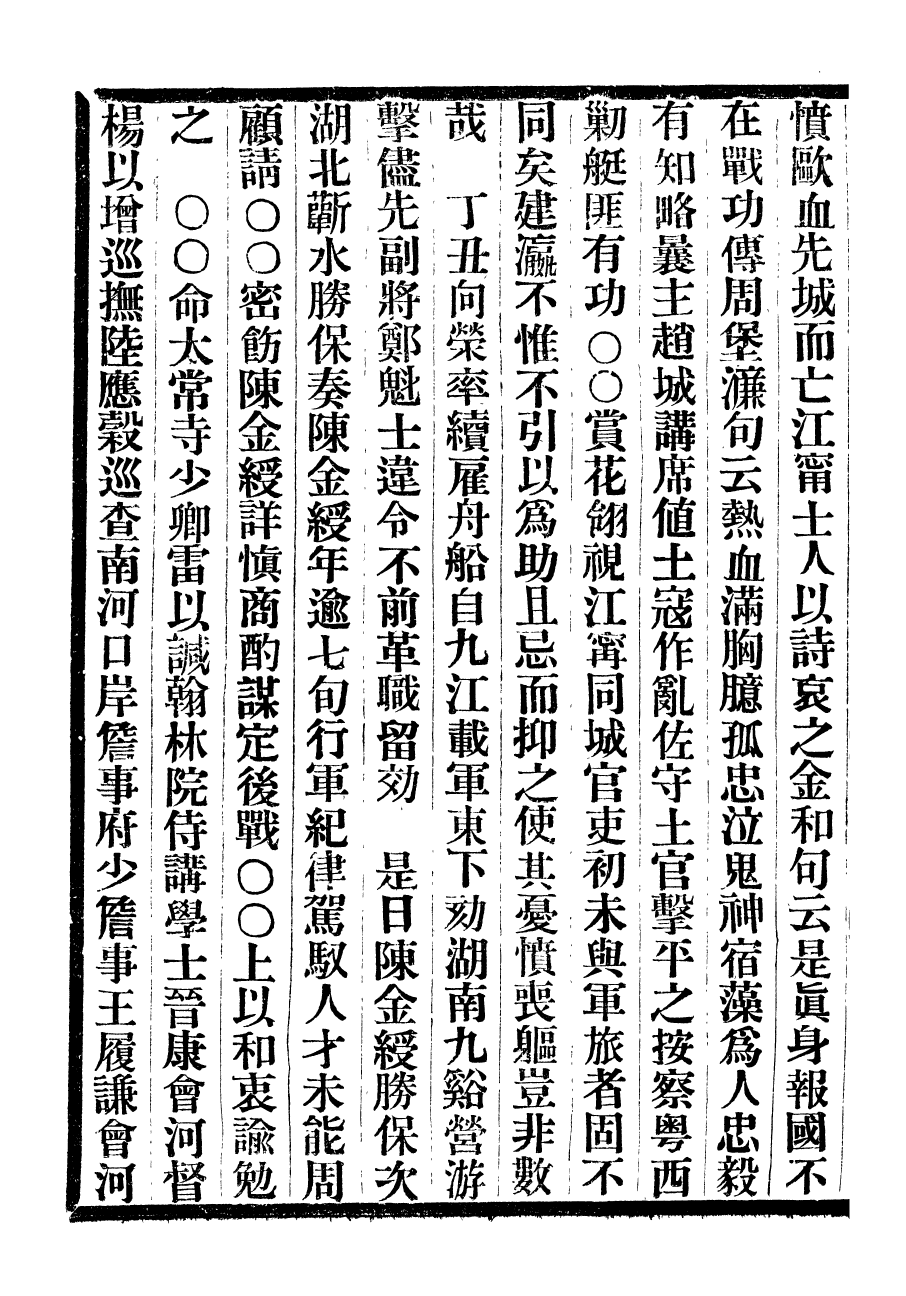 憤歐血先城而亡江甯士人以詩哀之金和句云是眞身報國不
在戰功傳周葆濂句云熱血滿胸臆孤忠泣鬼神宿藻爲人忠毅
有知略曩主趙城講席値土寇作亂佐守土官擊平之按察粤西
剿艇匪有功〇〇賞花翎視江甯同城官吏初未與軍旅者固不
同矣建瀛不惟不引以爲助且忌而抑之使其憂憤喪軀豈非數
哉　丁丑向榮率續雇舟船自九江載軍東下劾湖南九谿營游
擊儘先副將鄭魁士違令不前革職留効　是日陳金綬勝保次
湖北蘄水勝保奏陳金綬年逾七旬行軍紀律駕馭人才未能周
顧請〇〇密飭陳金綬詳愼商酌謀定後戰〇〇上以和衷諭勉
之　〇〇命太常寺少卿雷以諴翰林院侍講學士晉康會河督
楊以增巡撫陸應榖巡查南河口岸詹事府少詹事王履謙會河